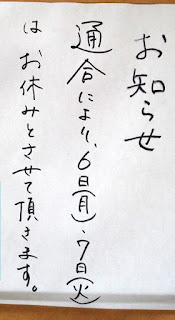 お知らせ
通合により、6日(月)・7日(火)
はお休みとさせて頂きます。